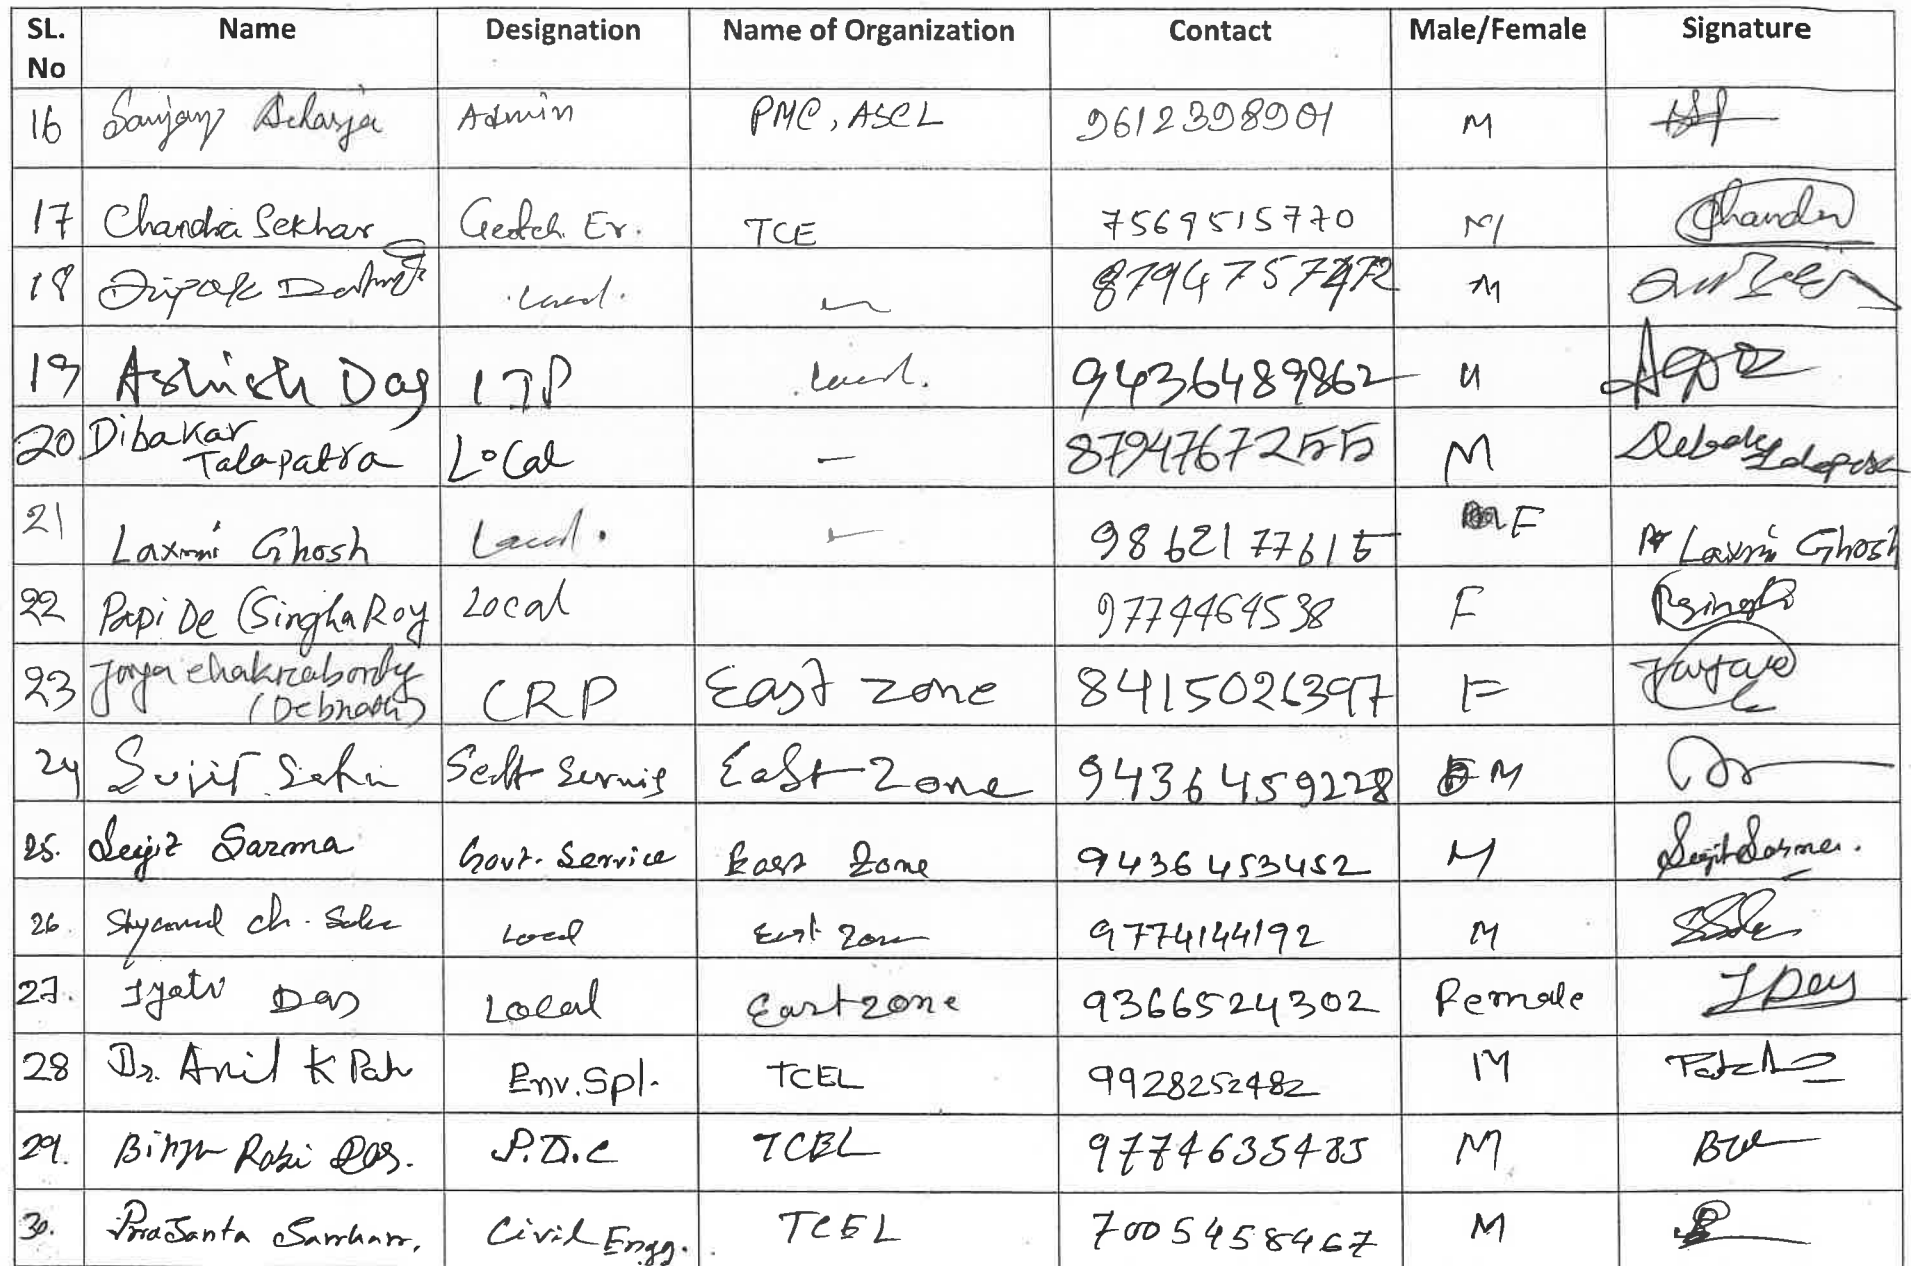 SL. No Name Designation Name of Organization Contact Male/Female Signature
16 Sanjay Acharja Admin PMC, ASCL 9612398901 M
17 Chandra Sekhar Geotech Er. TCE 7569515770 M Chandra
18 Dipak Local. M
19 Ashish Das ITP Local. 9436489862 M
20 Dibakar Talapatra Local – 8794767255 M
21 Laxmi Ghosh Local. – 9862177615 F Laxmi Ghosh
22 Papi De (Singha Roy Local 9774464538 F
23 Jaya Chakraborty (Debnath) CRP East zone 8415026397 F
24 Sujit Saha East Zone 9436459228 M
25. Sujit Sarma Govt. Service East Zone 9436453452 M Sujit Sarma.
26. Shyamal ch. Saha Local East Zone 9774144192 M
27. Jyoti Das Local East zone 9366524302 Female
28 Dr. Anil K Env. Spl. TCEL 9928252482 M
29. Rabi Das. TCEL 9774635485 M
30. Prasanta Sarkar. Civil Engg. TCEL 7005458467 M